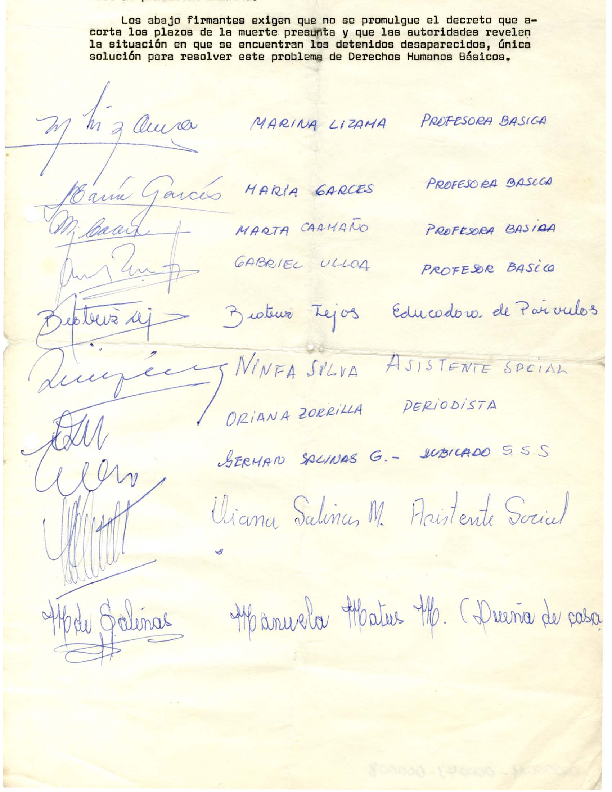 Los abajo firmantes exigen que no se promulgue el decreto que a-
corta los plazos de la muerte presunta y que las autoridades revelen
la situación en que se encuentran los detenidos desaparecidos, única
solución para resolver este problema de Derechos Humanos Básicos.
MARINA LIZAMA PROFESORA BASICA
María Garcés MARÍA GARCES PROFESORA BASICA
MARTA CAAMAÑO PROFESORA BASICA
GABRIEL ULLOA PROFESOR BASICO
Beatriz Tejos Educadora de Párvulos
NINFA SILVA ASISTENTE SOCIAL
ORIANA ZORRILLA PERIODISTA
GERMAN SALINAS G.- JUBILADO S S S
Viana Salinas M. Asistente Social
M de Salinas Manuela Matus M. (Dueña de casa